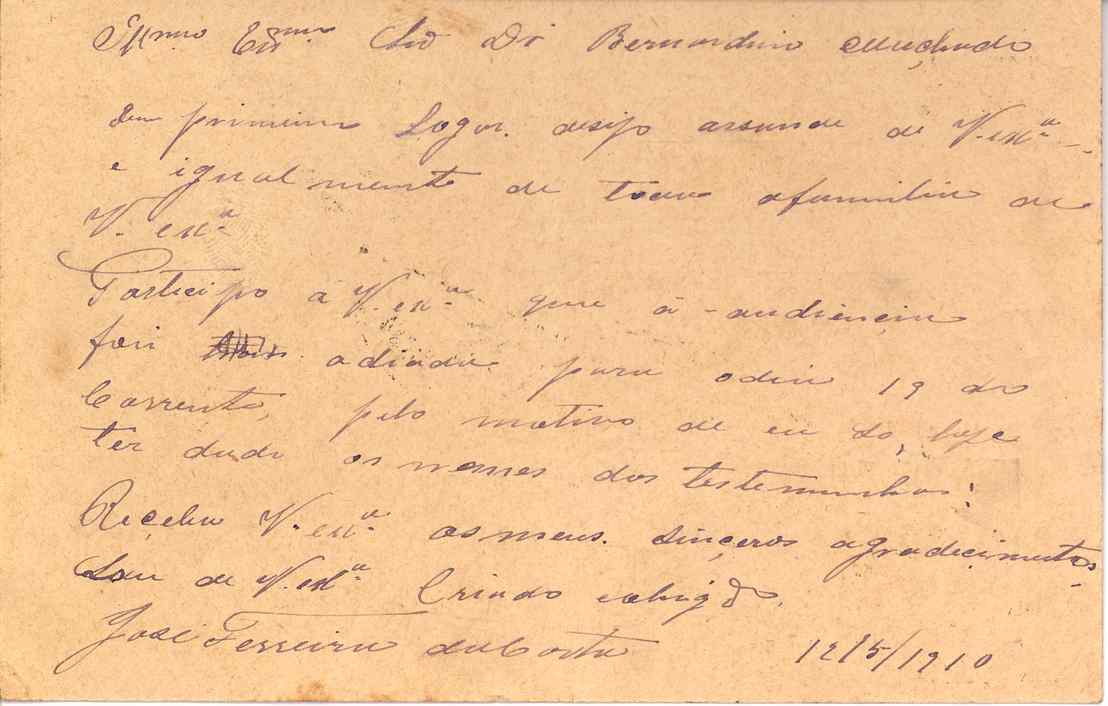 Exmo Exmo Snr Dr Bernardino Machado
Em primeiro Logar. desijo assaude de V. exª
e igualmente de toda afamilia de
V. exª
Participo á V. exª que á audiençia
foi adiada para odia 19 do
Corrente, pelo motivo de eu só, hoje
ter dado os nomes das testemunhas:
Reçeba V. exª os meus. sinçeros agradecimentos
Sou de V. exª Criado eobrigdo,
José Ferreira daCosta 12/5/1910